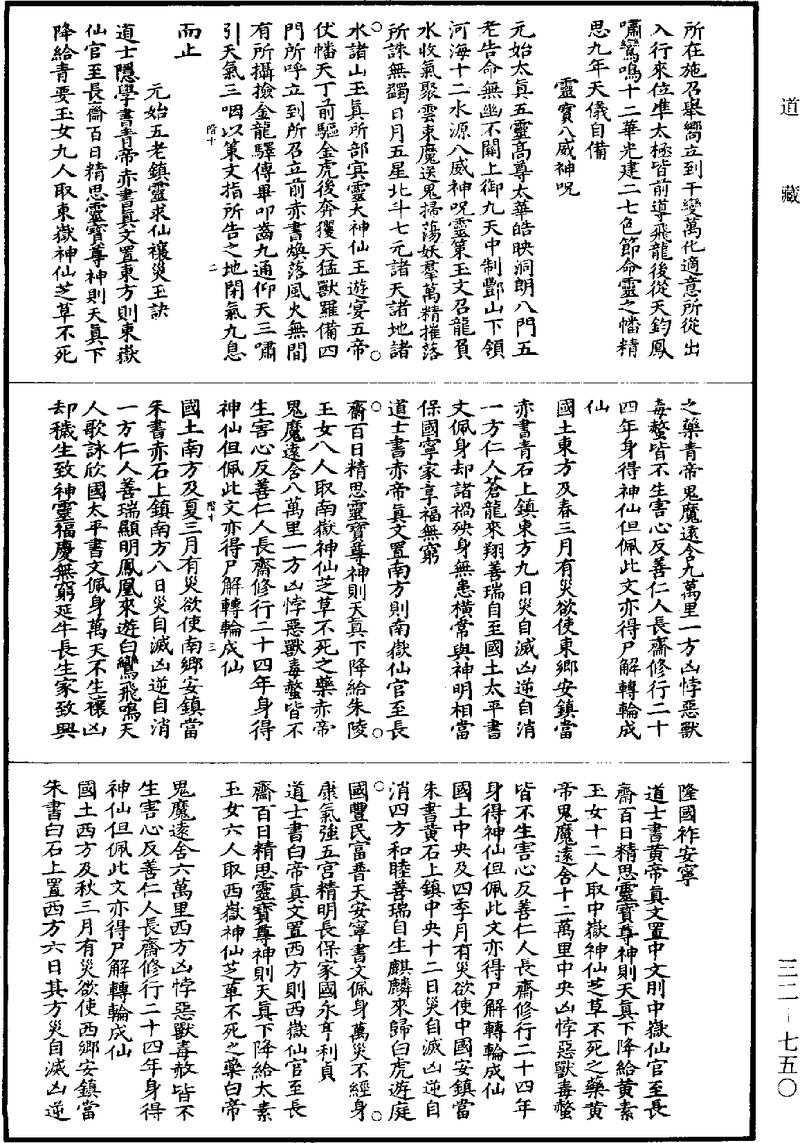 道藏
三二–七五〇
所在施召舉嚮立到千變萬化適意所從出
入行來位準太極皆前導飛龍後從天鈞鳳
嘯鸞鳴十二華光建二七色節命靈之幡精
思九年天儀自備
靈寶八威神呪
元始太真五靈高尊太華皓映洞朗八門五
老告命無幽不關上御九天中制酆山下領
河海十二水源八威神呪靈策玉文召龍負
水收氣聚雲束魔送鬼掃蕩妖羣萬精摧落
所誅無蠲日月五星北斗七元諸天諸地諸
水諸山王真所部冥靈大神仙王遊宴五帝
伏幡天丁前驅金虎後奔玃天猛獸羅備四
門所呼立到所召立前赤書煥落風火無間
有所攝撿金龍驛傳畢叩齒九通仰天三嘯
引天氣三咽以策文指所告之地閉氣九息
而止
元始五老鎮靈求仙禳災玉訣
道士隱學書青帝赤書真文置東方則東嶽
仙官至長齋百日精思靈寶尊神則天真下
降給青要玉女九人取東嶽神仙芝草不死
之藥青帝鬼魔遠舍九萬里一方凶悖惡獸
毒螫皆不生害心反善仁人長齋修行二十
四年身得神仙但佩此文亦得尸解轉輪成
仙
國土東方及春三月有災欲使東鄉安鎮當
赤書青石上鎮東方九日災自滅凶逆自消
一方仁人蒼龍來翔善瑞自至國土太平書
文佩身却諸禍殃身無患橫常與神明相當
保國寧家享福無窮
道士書赤帝真文置南方則南嶽仙官至長
齋百日精思靈寶尊神則天真下降給朱陵
玉女八人取南嶽神仙芝草不死之藥赤帝
鬼魔遠舍八萬里一方凶悖惡獸毒螫皆不
生害心反善仁人長齋修行二十四年身得
神仙但佩此文亦得尸解轉輪成仙
國土南方及夏三月有災欲使南鄉安鎮當
朱書赤石上鎮南方八日災自滅凶逆自消
一方仁人善瑞顯明鳳凰來遊白鸞飛鳴天
人歌詠欣國太平書文佩身萬天不生禳凶
却穢生致神靈福慶無窮延年長生家致興
隆國祚安寧
道士書黃帝真文置中文則中嶽仙官至長
齋百日精思靈寶尊神則天真下降給黃素
玉女十二人取中嶽神仙芝草不死之藥黃
帝鬼魔遠舍十二萬里中央凶悖惡獸毒螫
皆不生害心反善仁人長齋修行二十四年
身得神仙但佩此文亦得尸解轉輪成仙
國土中央及四季月有災欲使中國安鎮當
朱書黃石上鎮中央十二日災自滅凶逆自
消四方和睦善瑞自生麒麟來歸白虎遊庭
國豐民富普天安寧書文佩身萬災不經身
康氣強五宮精明長保家國永亨利貞
道士書白帝真文置西方則西嶽仙官至長
齋百日精思靈寶尊神則天真下降給太素
玉女六人取西嶽神仙芝草不死之藥白帝
鬼魔遠舍六萬里西方凶悖惡獸毒螫皆不
生害心反善仁人長齋修行二十四年身得
神仙但佩此文亦得尸解轉輪成仙
國土西方及秋三月有災欲使西鄉安鎮當
朱書白石上置西方六日其方災自滅凶逆